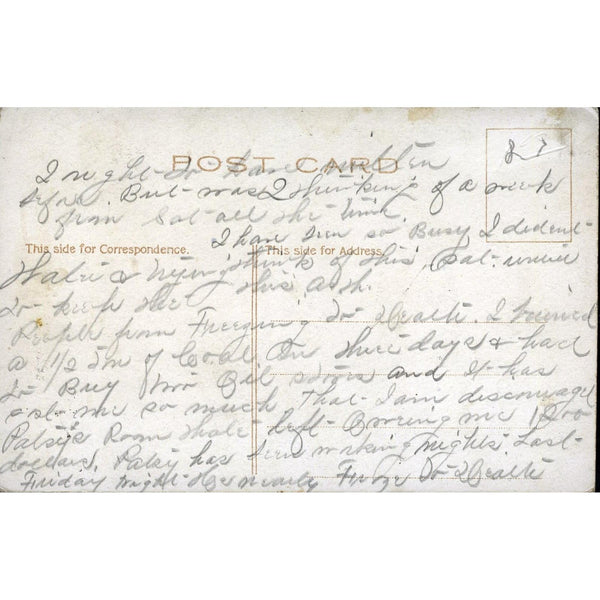 POST CARD
8 I
I night to have written
before. But was 2 thinking of a week
from Sat all the time.
I have been so Busy I dident
This side for Correspondence.
This side for Address.
think of this Sat. until
this A.M.
to keep the
People from Freezing to Death. I burned
a 1 1/2 Ton of Coal In three days & had
to Buy two Oil stoves and It has
cost me so much That I am discouraged
Patsy's Room mate left Owering me 12 00
dollars. Patsy has been working nights. Last
Friday night He nearly Froze to Death